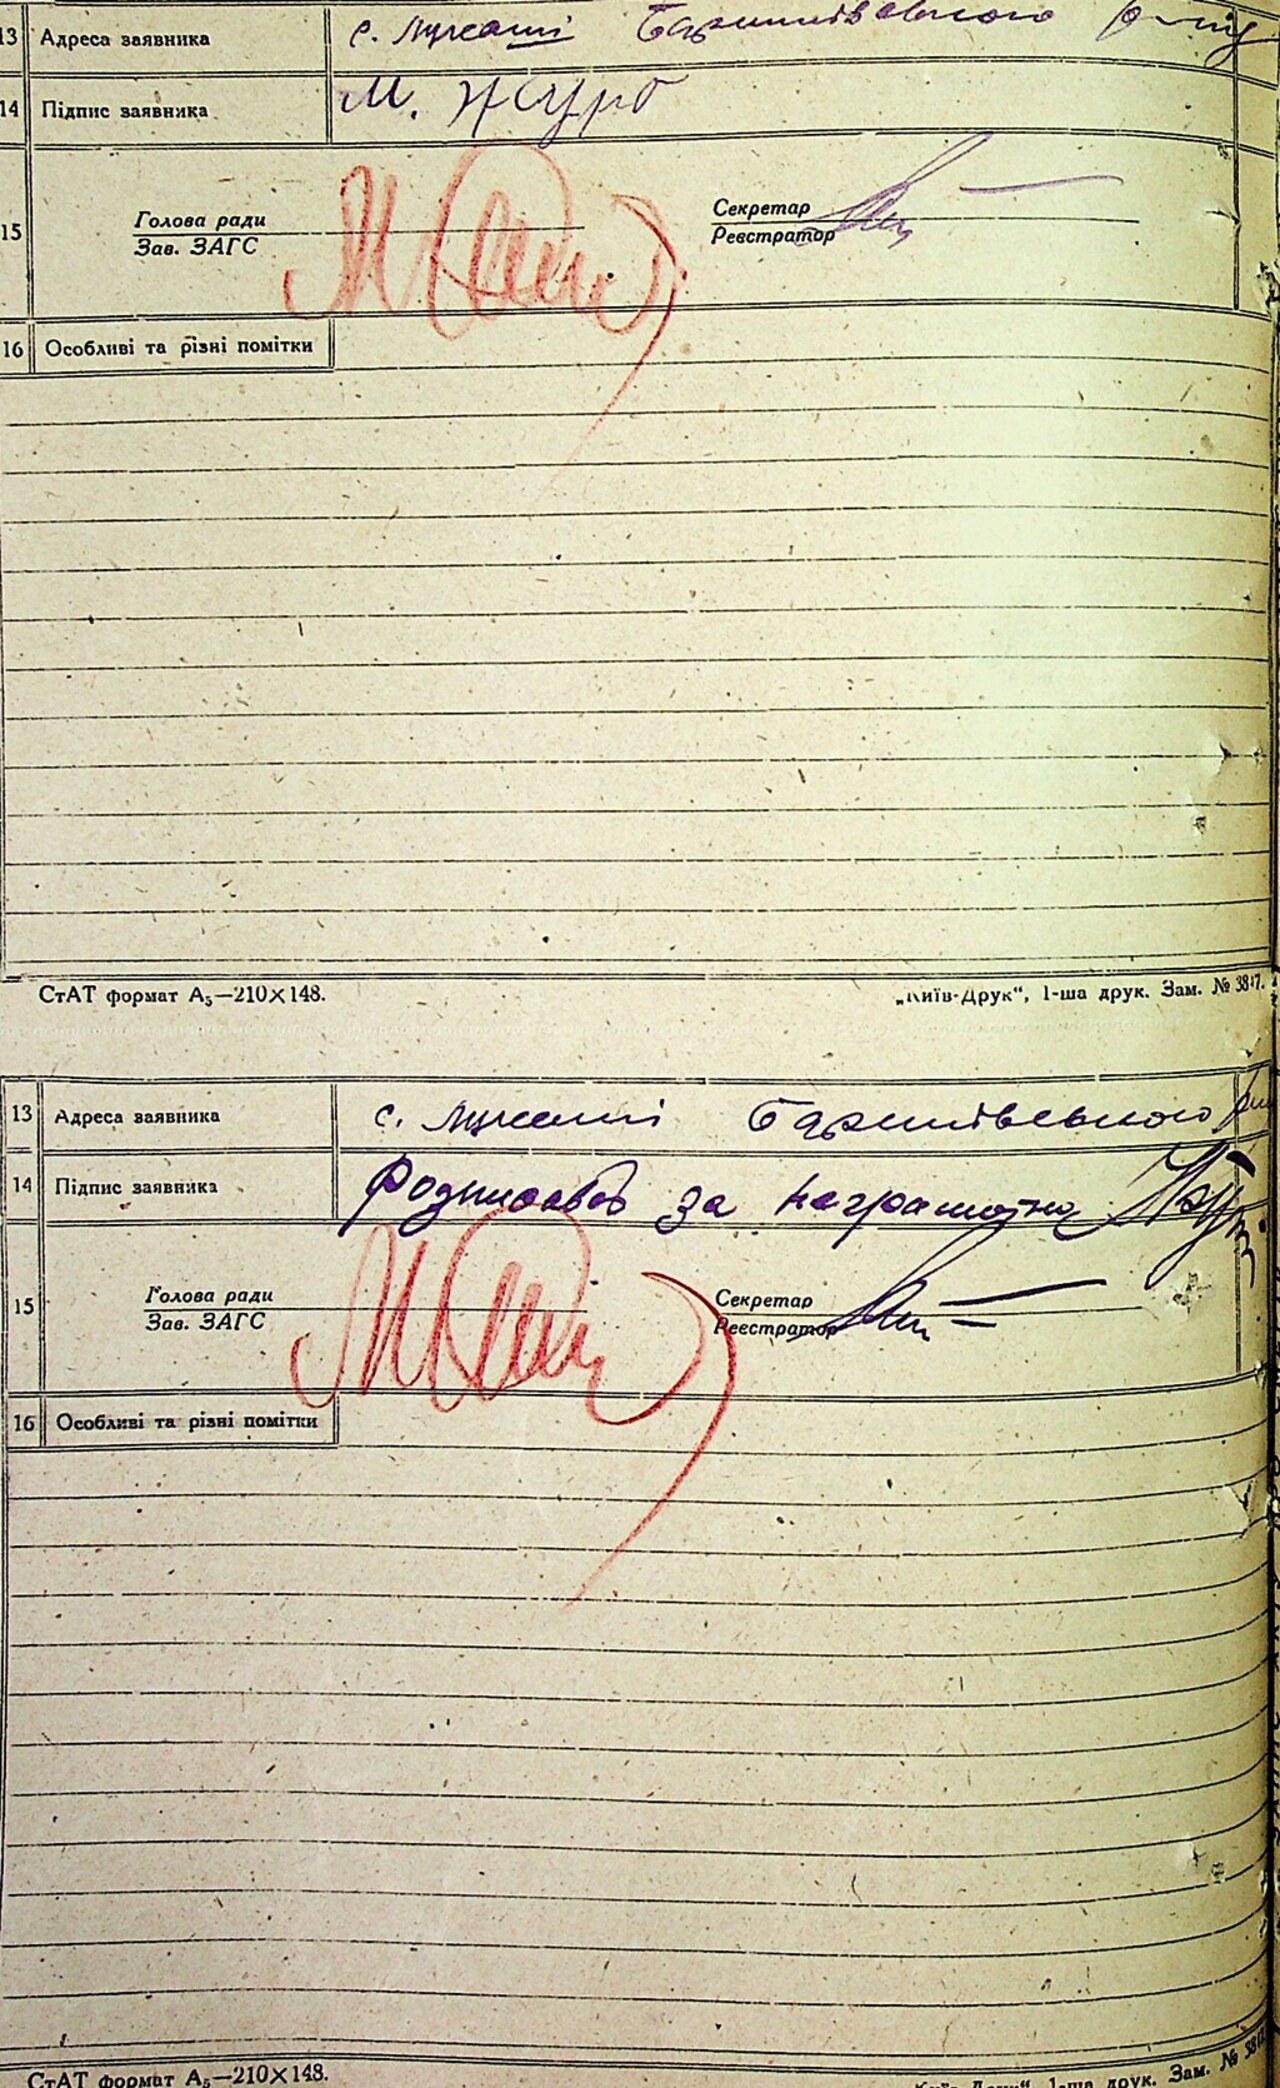 13 Адреса заявника с. Лукаші Баришівського
14 Підпис заявника М. Журб
15 Голова ради Секретар
Зав. ЗАГС Реєстратор
16 Особливі та різні помітки
СтАТ формат А₅—210×148. „Київ-Друк“, 1-ша друк. Зам. № 3817.
13 Адреса заявника с. Лукаші Баришівського
14 Підпис заявника за неграмотну
15 Голова ради Секретар
Зав. ЗАГС Реєстратор
16 Особливі та різні помітки
СтАТ формат А₅—210×148. „Київ-Друк“, 1-ша друк. Зам. №